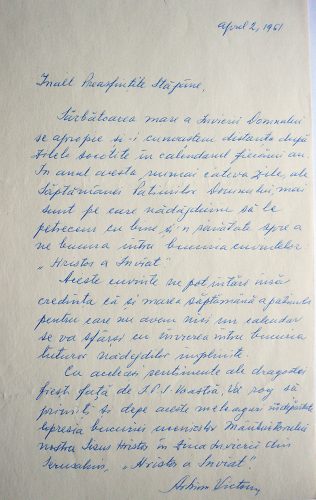 April 2, 1961
Inalt Preasfintite Stăpâne,
Sărbătoarea mare a Invierii Domnului
se apropie și-i cunoaștem distanța după
zilele socotite în calendarul fiecărui an
In anul acesta numai câteva zile, ale
Săptămânei Patimilor Domnului, mai
sunt pe care nădăjduim să le
petrecem cu bine și'n sănătate spre a
ne bucura întru bucuria cuvintelor
„Hristos a Inviat"
Aceste cuvinte ne pot întări însă
credința că și marea săptămână a patimilor
pentru care nu avem nici un calendar
se va sfârși cu învierea întru bucuria
tuturor nădejdilor împlinite.
Cu aceleași sentimente ale dragostei
fiești față de I.P.S. Voastră, Vă rog să
primiți și depe aceste meleaguri îndepărtate
expresia bucuriei învierilor Mântuitorului
nostru Iisus Hristos în ziua Invierii din
Ierusalim, „Hristos a Inviat"